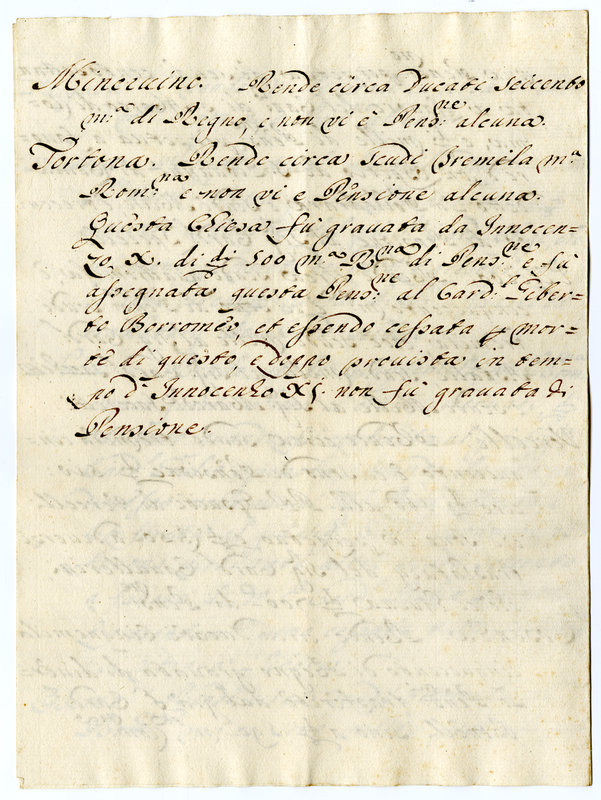 Mineruino. Rende circa Ducati Seicento
m.ta di Regno, e non vi è Pens:ne alcuna.
Tortona. Rende circa Scudi Tremila m.ta
Rom:na e non vi e Pensione alcuna.
Questa Chiesa fù grauata da Innocen=
zo X. di 500 m.ta R:na di Pens:ne e fù
assegnata questa Pens:ne al Card:le Giber=
to Borromeo, et essendo cessata p mor=
te di questo, e doppo prouista in tem=
po d' Innocenzo XI. non fù grauata di
Pensione.